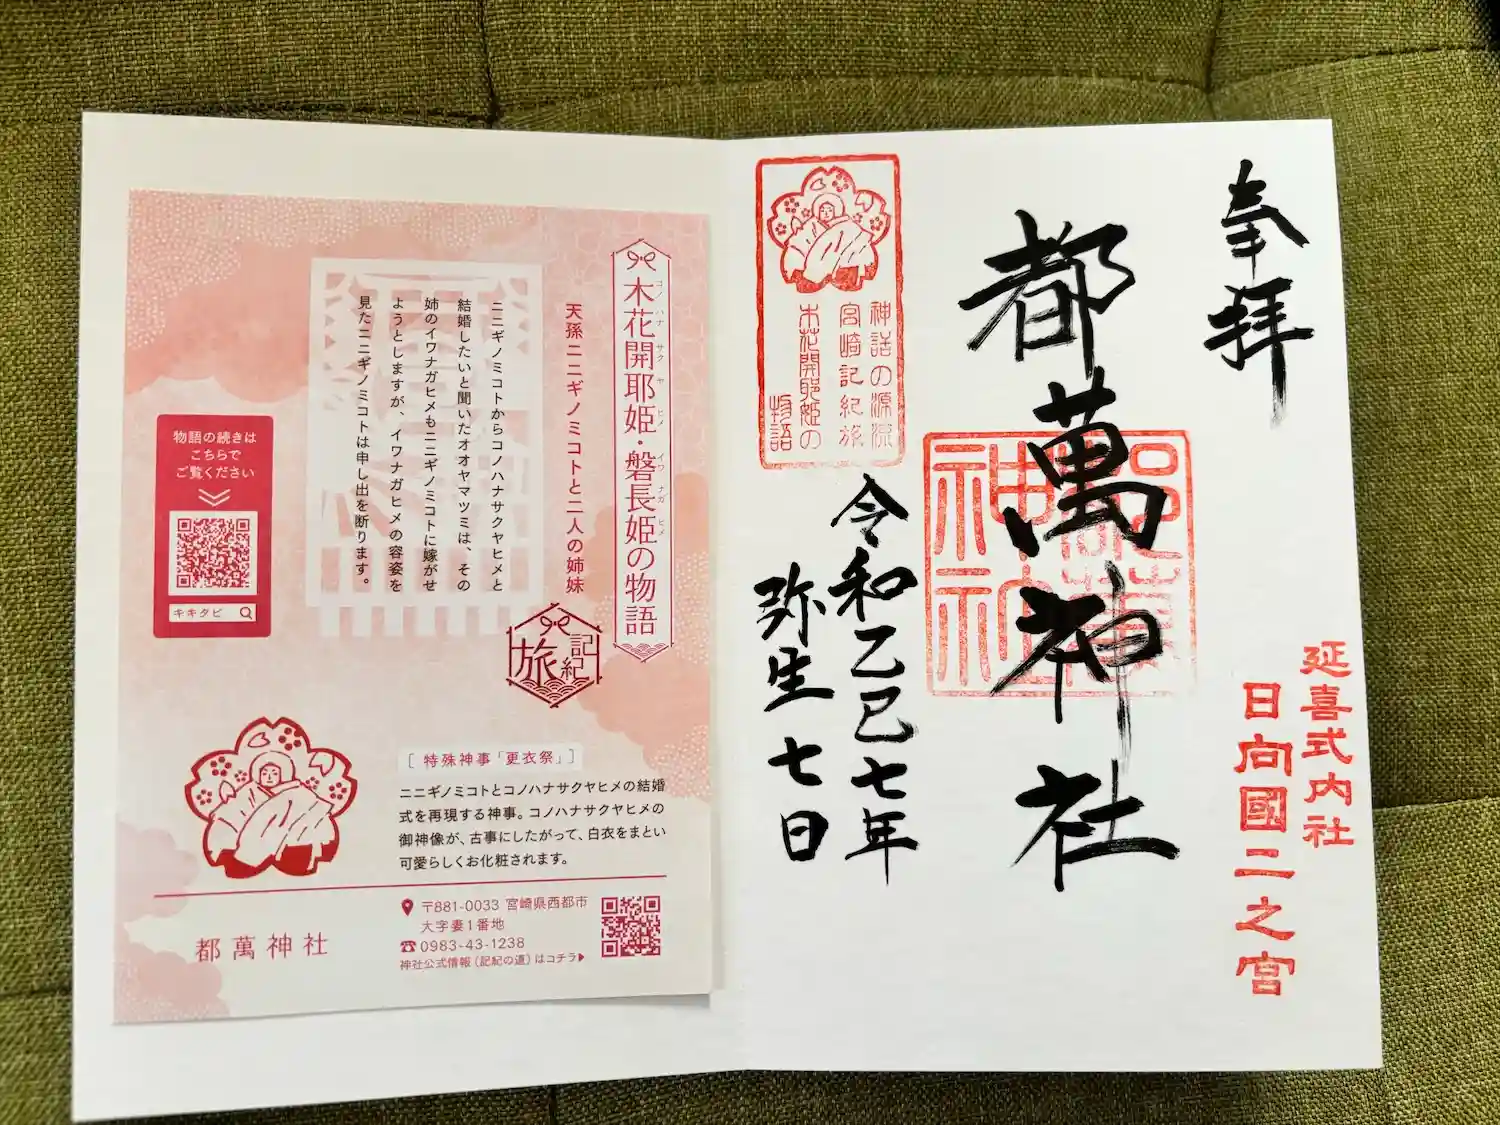 奉拝
都萬神社
延喜式内社
日向國二之宮
都萬
神社
神話の源流
宮崎記紀旅
木花開耶姫の
物語
令和乙巳七年
弥生七日
木花開耶姫・磐長姫の物語
コノハナサクヤヒメ イワナガヒメ
天孫ニニギノミコトと二人の姉妹
ニニギノミコトからコノハナサクヤヒメと
結婚したいと聞いたオオヤマツミは、その
姉のイワナガヒメもニニギノミコトに嫁がせ
ようとしますが、イワナガヒメの容姿を
見たニニギノミコトは申し出を断ります。
記紀
旅
物語の続きは
こちらで
ご覧ください
キキタビ
[ 特殊神事「更衣祭」]
ニニギノミコトとコノハナサクヤヒメの結婚
式を再現する神事。コノハナサクヤヒメの
御神像が、古事にしたがって、白衣をまとい
可愛らしくお化粧されます。
都萬神社
〒881-0033 宮崎県西都市
大字妻1番地
☎0983-43-1238
神社公式情報(記紀の道)はコチラ▶